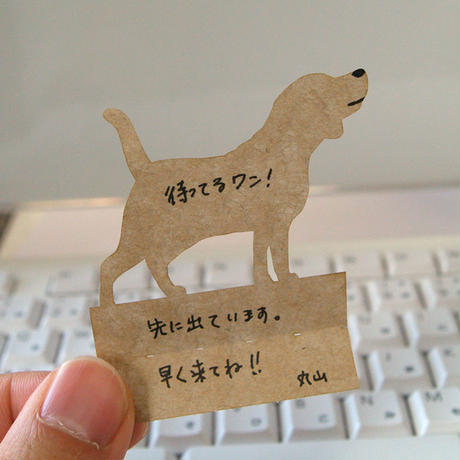 待ってるワン!
先に出ています。
早く来てね!!
丸山